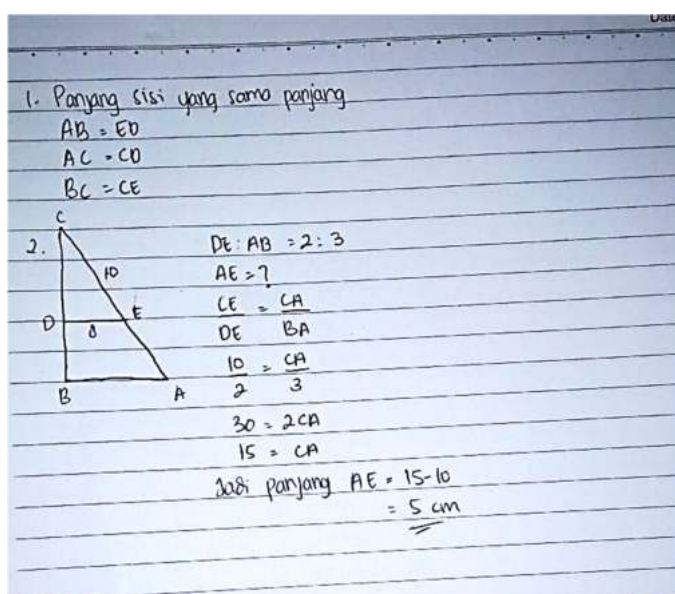 1. Panjang sisi yang sama panjang
AB = ED
AC = CD
BC = CE
2.
C
10
D
8
E
B
A
DE : AB = 2 : 3
AE = ?
CE = CA
DE BA
10 = CA
2 3
30 = 2CA
15 = CA
Jadi panjang AE = 15-10
= 5 cm